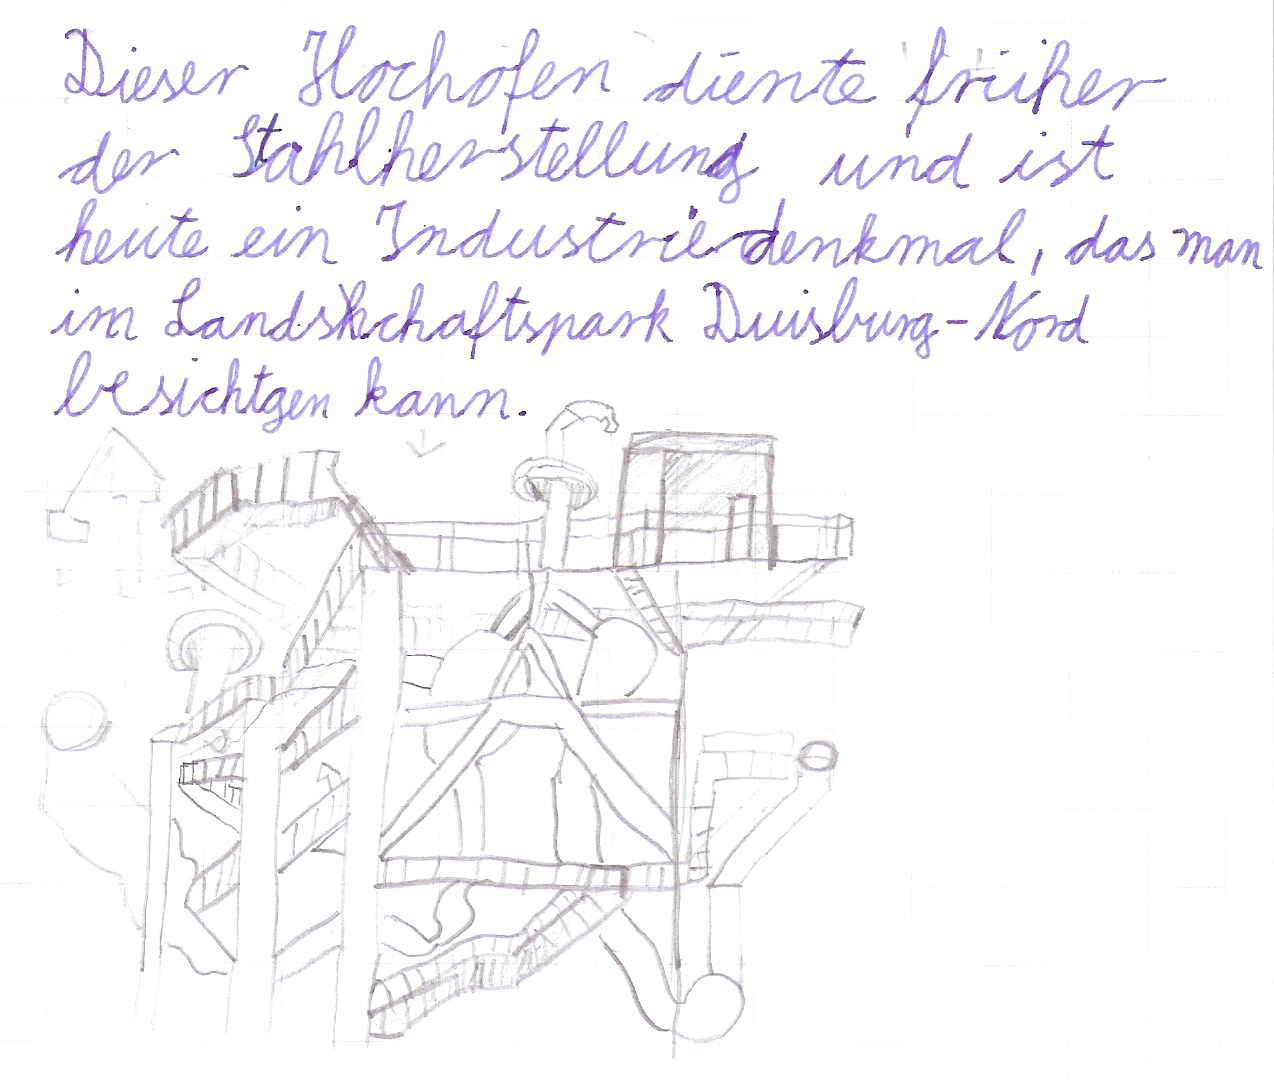 Dieser Hochofen diente früher
der Stahlherstellung und ist
heute ein Industriedenkmal, das man
im Landschaftspark Duisburg-Nord
besichtgen kann.